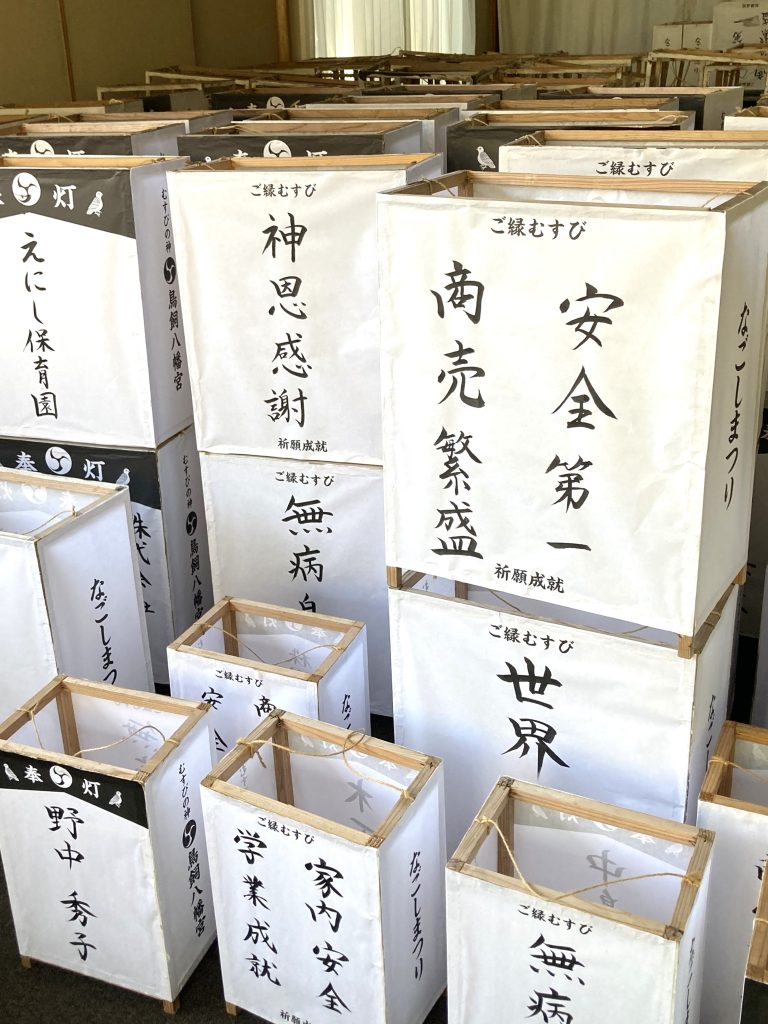 ご縁むすび
奉灯
えにし保育園
むすびの神
鳥飼八幡宮
ご縁むすび
神恩感謝
祈願成就
ご縁むすび
安全第一
商売繁盛
祈願成就
なごしまつり
奉灯
株式会社
むすびの神
鳥飼八幡宮
ご縁むすび
無病
ご縁むすび
世界
なごしまつり
ご縁むすび
商
安全
奉灯
野中 秀子
むすびの神
鳥飼八幡宮
ご縁むすび
家内安全
学業成就
祈願成就
なごしまつり
ご縁むすび
無病